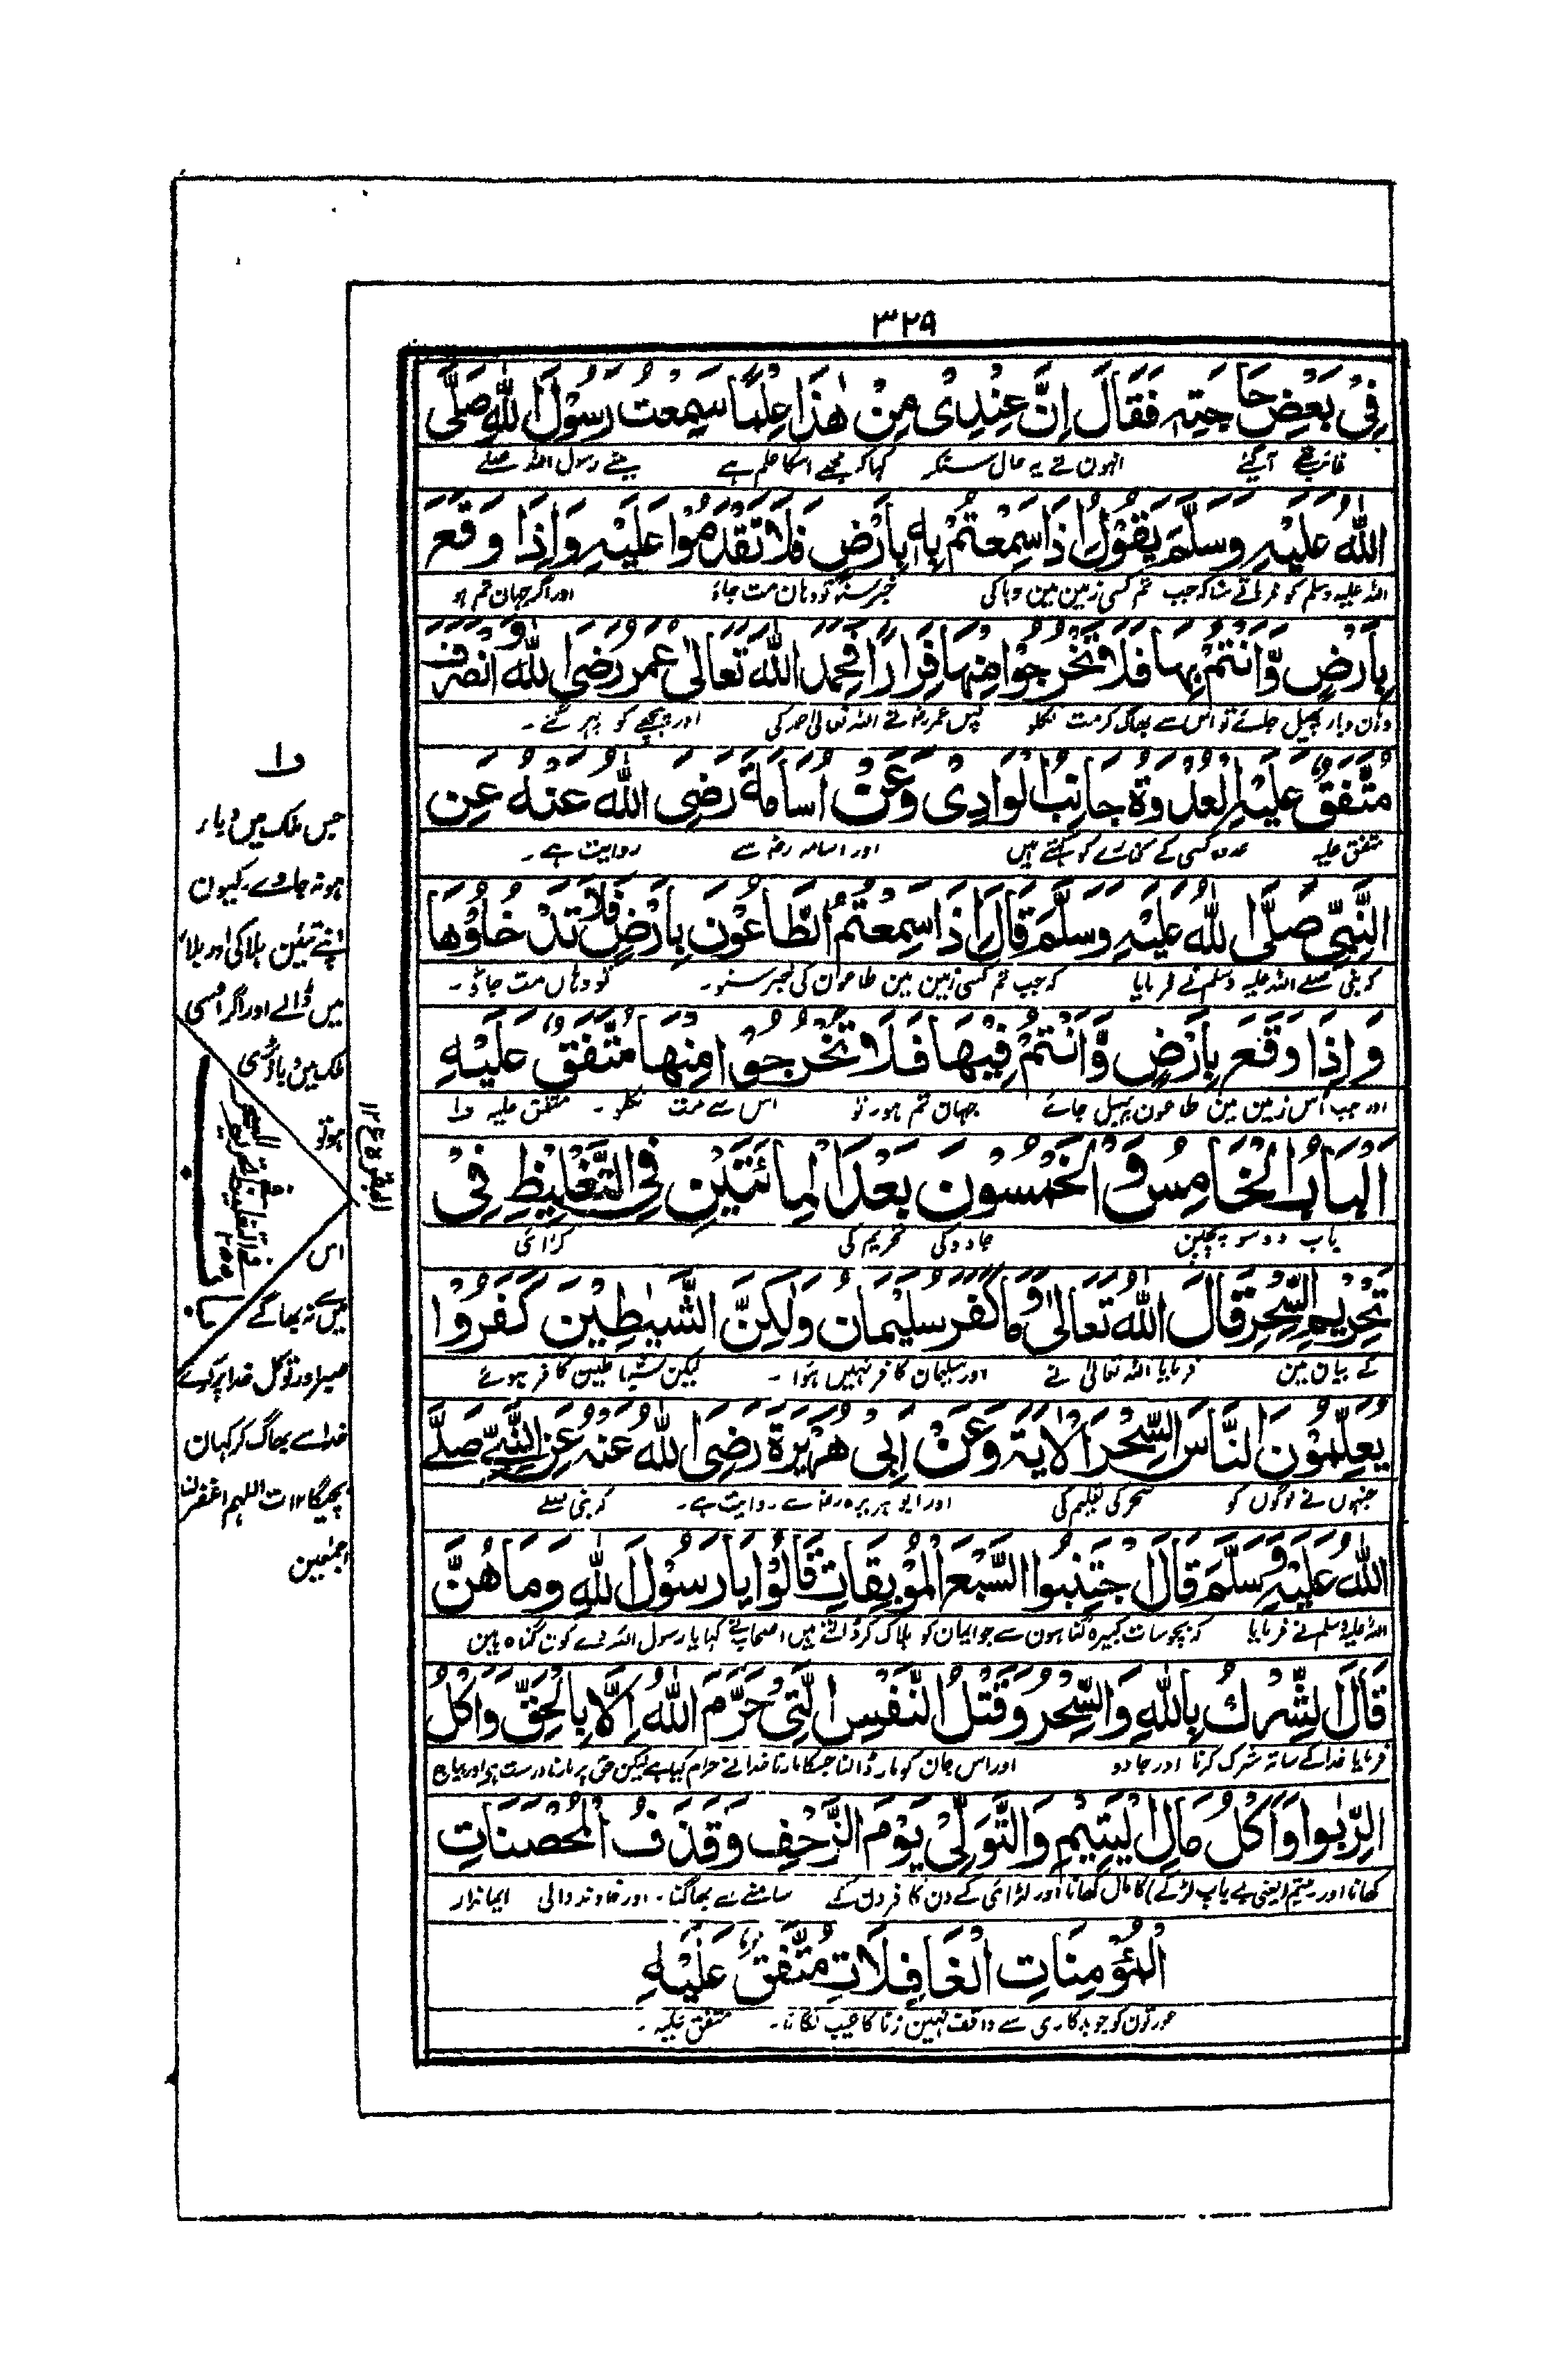 ٣٢٩
فِيْ بَعْضِ حَاجَتِهٖ فَقَالَ إِنَّ عِنْدِيْ مِنْ هٰذَا عِلْمًا سَمِعْتُ رَسُوْلَ اللّٰهِ صَلَّى
آگئے انہون نے یہ حال سنکر کہا کہ مجھے اسکا علم ہے مینے رسول اللہ صلے
اللّٰهُ عَلَيْهِ وَسَلَّمَ يَقُوْلُ إِذَا سَمِعْتُمْ بِهٖ بِأَرْضٍ فَلَا تَقْدَمُوْا عَلَيْهِ وَإِذَا وَقَعَ
اللہ علیہ وسلم کو فرماتے سنا کہ جب تم کسی زمین مین وبا کی خبر سنو تو وہان مت جاؤ اور اگر جہان تم ہو
بِأَرْضٍ وَّأَنْتُمْ بِهَا فَلَا تَخْرُجُوْا مِنْهَا فِرَارًا فَحَمِدَ اللّٰهَ تَعَالٰى عُمَرُ رَضِيَ اللّٰهُ وَانْصَرَفَ
وہان وبا پھیل جائے تو اس سے بھاگ کر مت نکلو پس عمر رض نے اللہ تعالیٰ حمد کی اور پیچھے کو پھر گئے ۔
مُتَّفَقٌ عَلَيْهِ الْعُدْوَةُ جَانِبُ الْوَادِيْ وَعَنْ أُسَامَةَ رَضِيَ اللّٰهُ عَنْهُ عَنِ
متفق علیہ عدوہ کسی کے کنارے کو کہتے ہیں اور اسامہ رض سے روایت ہے ۔
النَّبِيِّ صَلَّى اللّٰهُ عَلَيْهِ وَسَلَّمَ قَالَ إِذَا سَمِعْتُمُ الطَّاعُوْنَ بِأَرْضٍ فَلَا تَدْخُلُوْهَا
کہ نبی صلے اللہ علیہ وسلم نے فرمایا کہ جب تم کسی زمین مین طاعون کی خبر سنو ۔ تو وہاں مت جاؤ ۔
وَإِذَا وَقَعَ بِأَرْضٍ وَّأَنْتُمْ فِيْهَا فَلَا تَخْرُجُوْا مِنْهَا مُتَّفَقٌ عَلَيْهِ
اور جب اس زمین مین طاعون پھیل جائے جہان تم ہو ۔ تو اس سے مت نکلو ۔ متفق علیہ ف۱
اَلْبَابُ الْخَامِسُ وَالْخَمْسُوْنَ بَعْدَ الْمِائَتَيْنِ فِي التَّغْلِيْظِ فِيْ
باب دو سو پچپن جادو کی تحریم کی کڑائی
تَحْرِيْمِ السِّحْرِ قَالَ اللّٰهُ تَعَالٰى وَمَا كَفَرَ سُلَيْمَانُ وَلٰكِنَّ الشَّيٰطِيْنَ كَفَرُوْا
کے بیان مین فرمایا اللہ تعالیٰ نے اور سلیمان کافر نہیں ہوا ۔ لیکن شیاطین کافر ہوئے
يُعَلِّمُوْنَ النَّاسَ السِّحْرَ الْاٰيَةَ وَعَنْ أَبِيْ هُرَيْرَةَ رَضِيَ اللّٰهُ عَنْهُ عَنِ النَّبِيِّ صَلَّى
جنہوں نے لوگوں کو سحر کی تعلیم کی اور ابو ہریرہ رض سے روایت ہے ۔ کہ نبی صلے
اللّٰهُ عَلَيْهِ وَسَلَّمَ قَالَ اجْتَنِبُوا السَّبْعَ الْمُوْبِقَاتِ قَالُوْا يَا رَسُوْلَ اللّٰهِ وَمَا هُنَّ
اللہ علیہ وسلم نے فرمایا کہ بچو سات کبیرہ گناہون سے جو ایمان کو ہلاک کر ڈالتے ہیں اصحاب نے کہا یا رسول اللہ وے کون گناہ ہین
قَالَ الشِّرْكُ بِاللّٰهِ وَالسِّحْرُ وَقَتْلُ النَّفْسِ الَّتِيْ حَرَّمَ اللّٰهُ إِلَّا بِالْحَقِّ وَأَكْلُ
فرمایا خدا کے ساتھ شرک کرنا اور جادو اور اس جان کو مار ڈالنا جسکا مارنا خدا نے حرام کیا ہے لیکن حق پر مارنا درست ہے اور بیاج
الرِّبٰوا وَأَكْلُ مَالِ الْيَتِيْمِ وَالتَّوَلِّيْ يَوْمَ الزَّحْفِ وَقَذْفُ الْمُحْصَنَاتِ
کھانا اور یتیم (یعنی بے باپ لڑکے) کا مال کھانا اور لڑائی کے دن کافرون کے سامنے سے بھاگنا ۔ اور خاوند والی ایماندار
الْمُؤْمِنَاتِ الْغَافِلَاتِ مُتَّفَقٌ عَلَيْهِ
عورتون کو جو بدکاری سے واقف نہین زنا کا عیب لگانا ۔ متفق علیہ ۔
ف۱
جس ملک میں وبا
ہو نہ جاوے ۔ کیون
اپنے تئین ہلاکی اور بلا
میں ڈالے اور اگر اسی
ملک مین وبا
ہو تو
اس
میں نہ بھاگے
صبر اور توکل خدا پر کرے
خدا سے بھاگ کر کہان
بچیگا اللہم اغفر لنا
اجمعین
البقرة ع ١٢